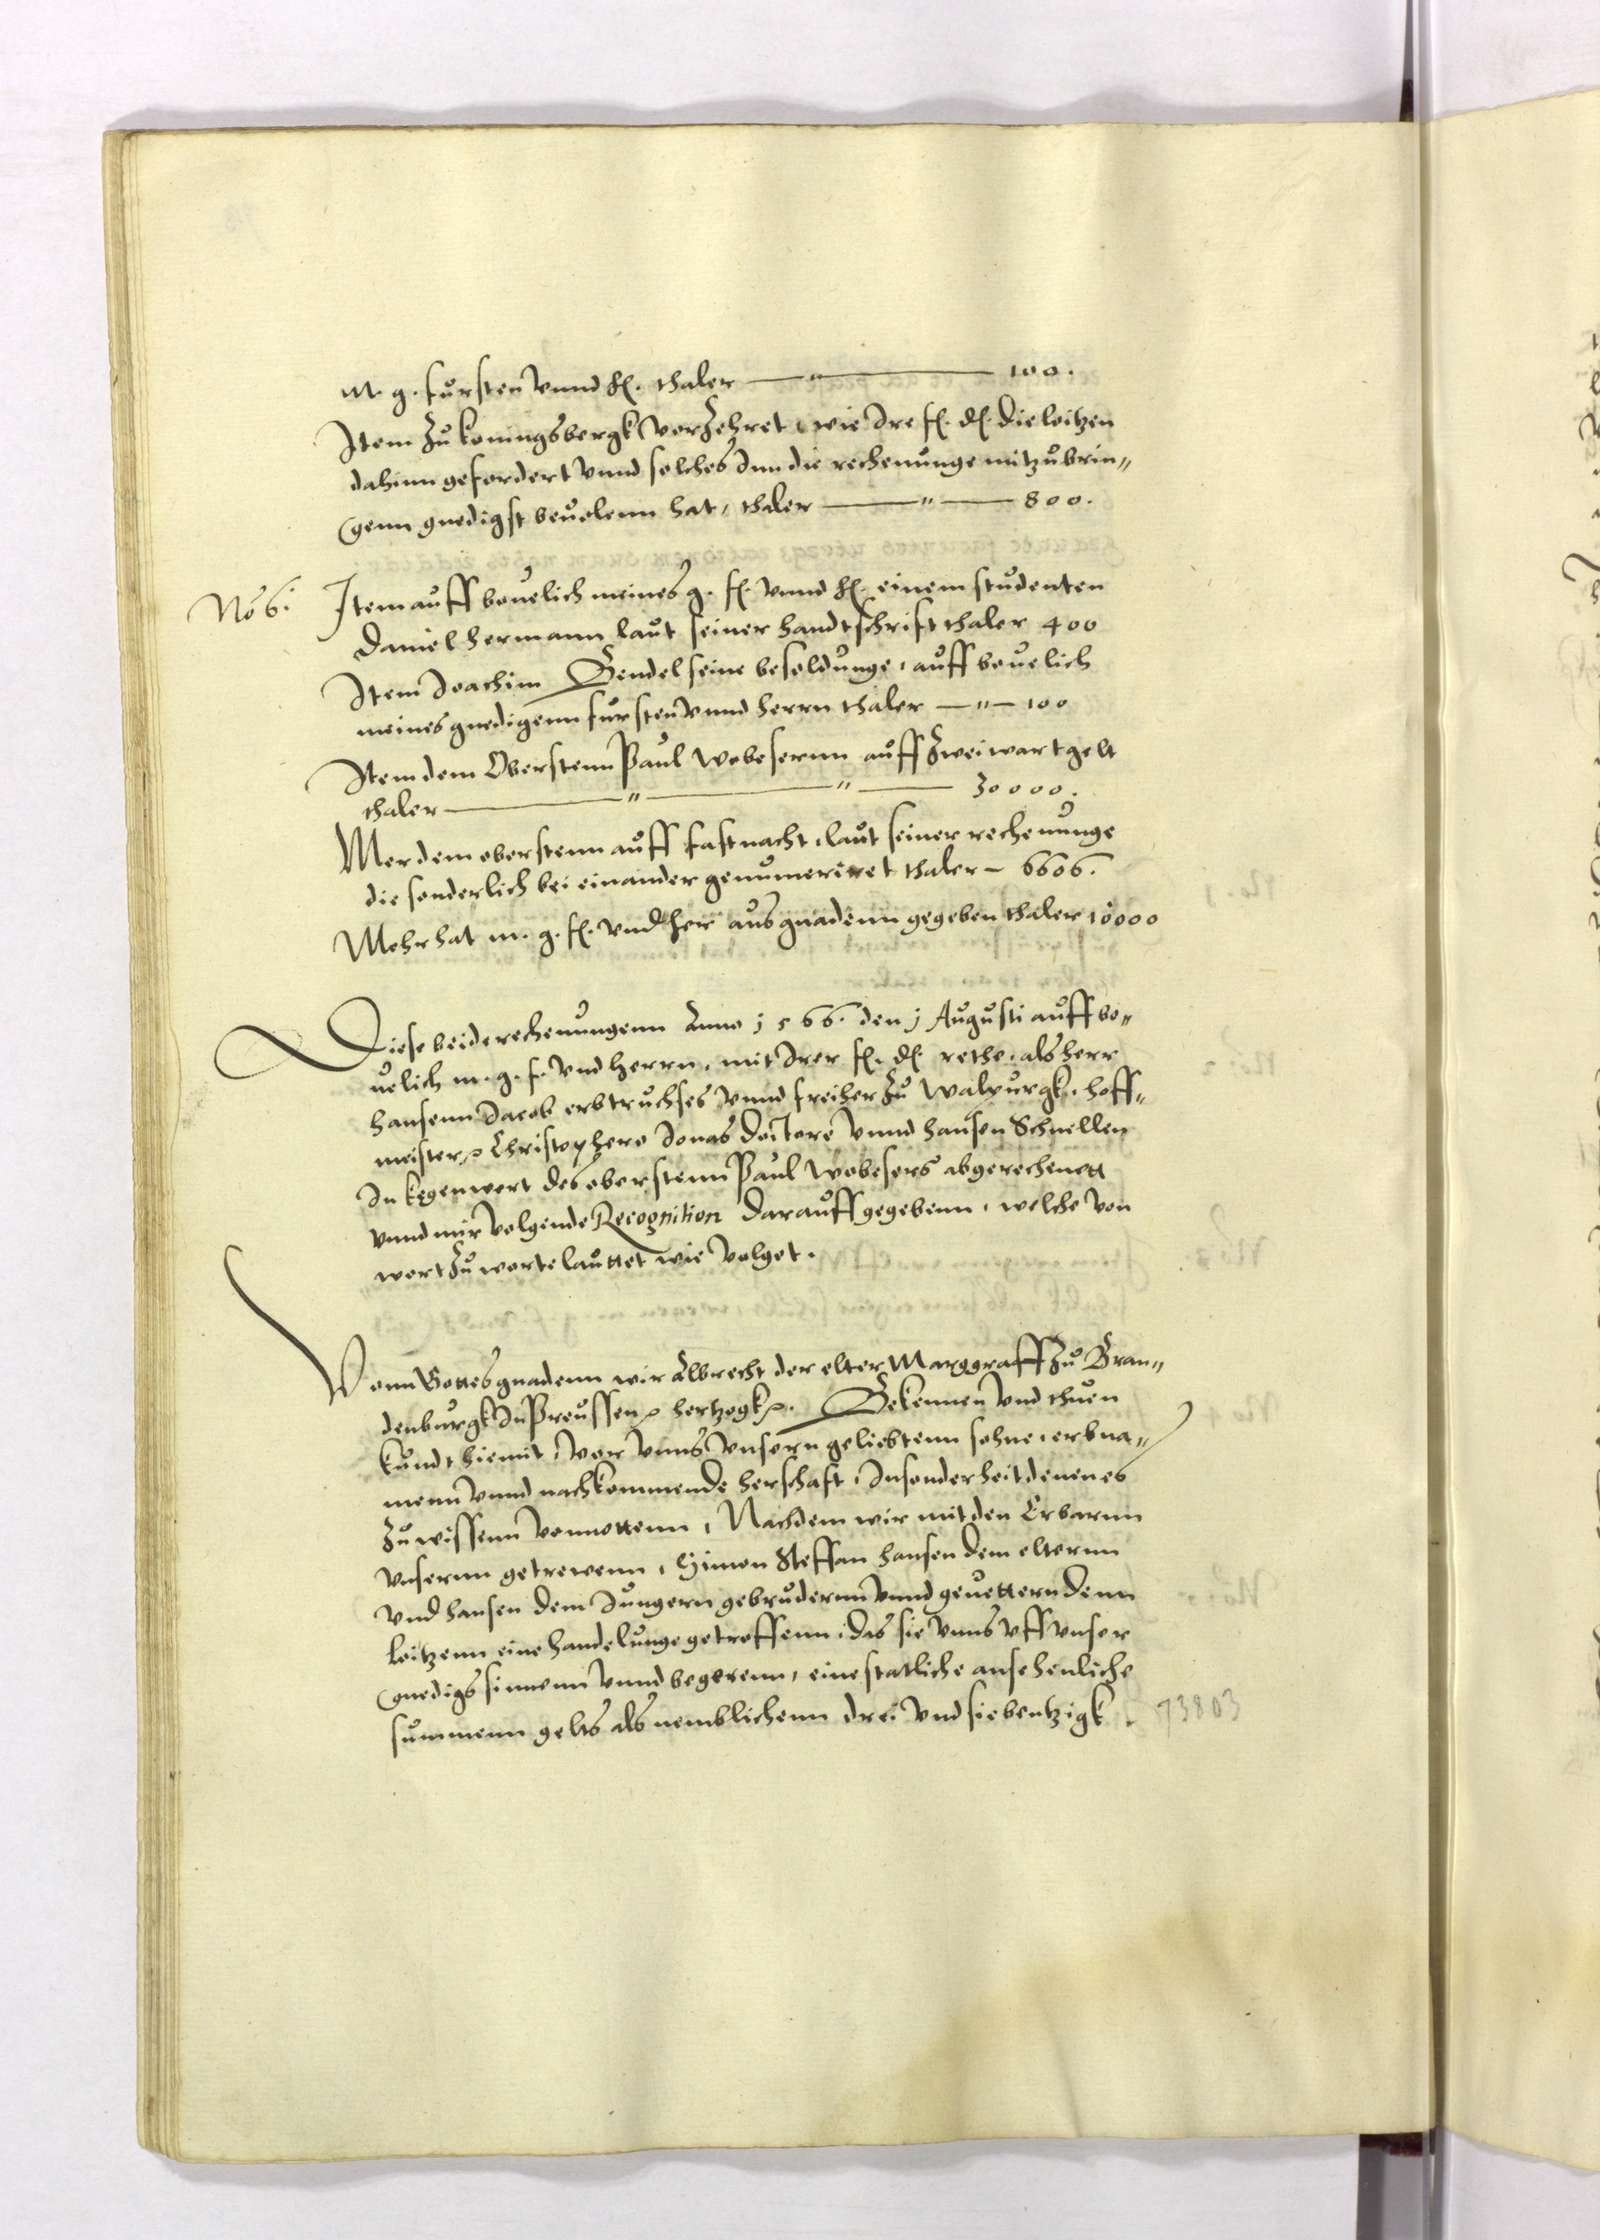 m. g. fursten vnnd h. thaler — " — 100.
Item zu koningsbergk vorzehret, wie Ire f. d. die loitzen
dahinn gefordert vnnd solches Inn die rechenunge mitzubrin„
genn gnedigst beuolenn hat, thaler — " — 800.
No 6. Item auff beuelich meines g. f. vnnd h. einem studenten
Daniel hermann laut seiner handtschrift thaler 400
Item Joachim Bendel seine besoldunge, auff beuelich
meines gnedigenn fursten vnnd herrn thaler — " — 100
Item dem Oberstenn Paul Wobesernn auff zwei wartgelt
thaler — " — " — 30000.
Mer dem oberstenn auff fastnacht, laut seiner rechenunge
die sonderlich bei einander genumeriret thaler – 6606.
Mehr hat m. g. f. vnd her aus gnadenn gegeben thaler 10000
Diese beide rechenungenn Anno j566. den j Augusti auff be„
uelich m. g. f. vnd herrn, mit Irer f. d. rethe, als herr
hansenn Jacob erbtruchses vnnd freiher zu Walpurgk, hoff„
meister, Christophero Jonas doctore vnnd hansen Schnellen
In kegenwert des oberstenn Paul Wobesers abgerechenett
vnnd mir volgende Recognition darauff gegebenn, welche von
wort zu worte lauttet wie volget.
Vonn Gottes gnadenn wir Albrecht der elter Marggraff zu Bran„
denburgk In Preussen hertzogk. Bekennen vnd thuen
kundt hiemit, vor vnns vnsern geliebtenn sohne, erbna„
menn vnnd nachkommende herschaft, Insonderheit denen es
zu wissenn vonnottenn, Nachdem wir mit den Erbarnn
vnsernn getrewenn, Simon Steffan hansen dem elternn
vnd hansen dem Jungern gebrudernn vnnd geuetterndenn
loitzenn eine handelunge getroffenn, das sie vnns vff vnser
gnedigs sinnenn vnnd begerenn, eine statliche ansehenliche
summenn gelts als nemblichenn drei vnd siebentzigk. 73803